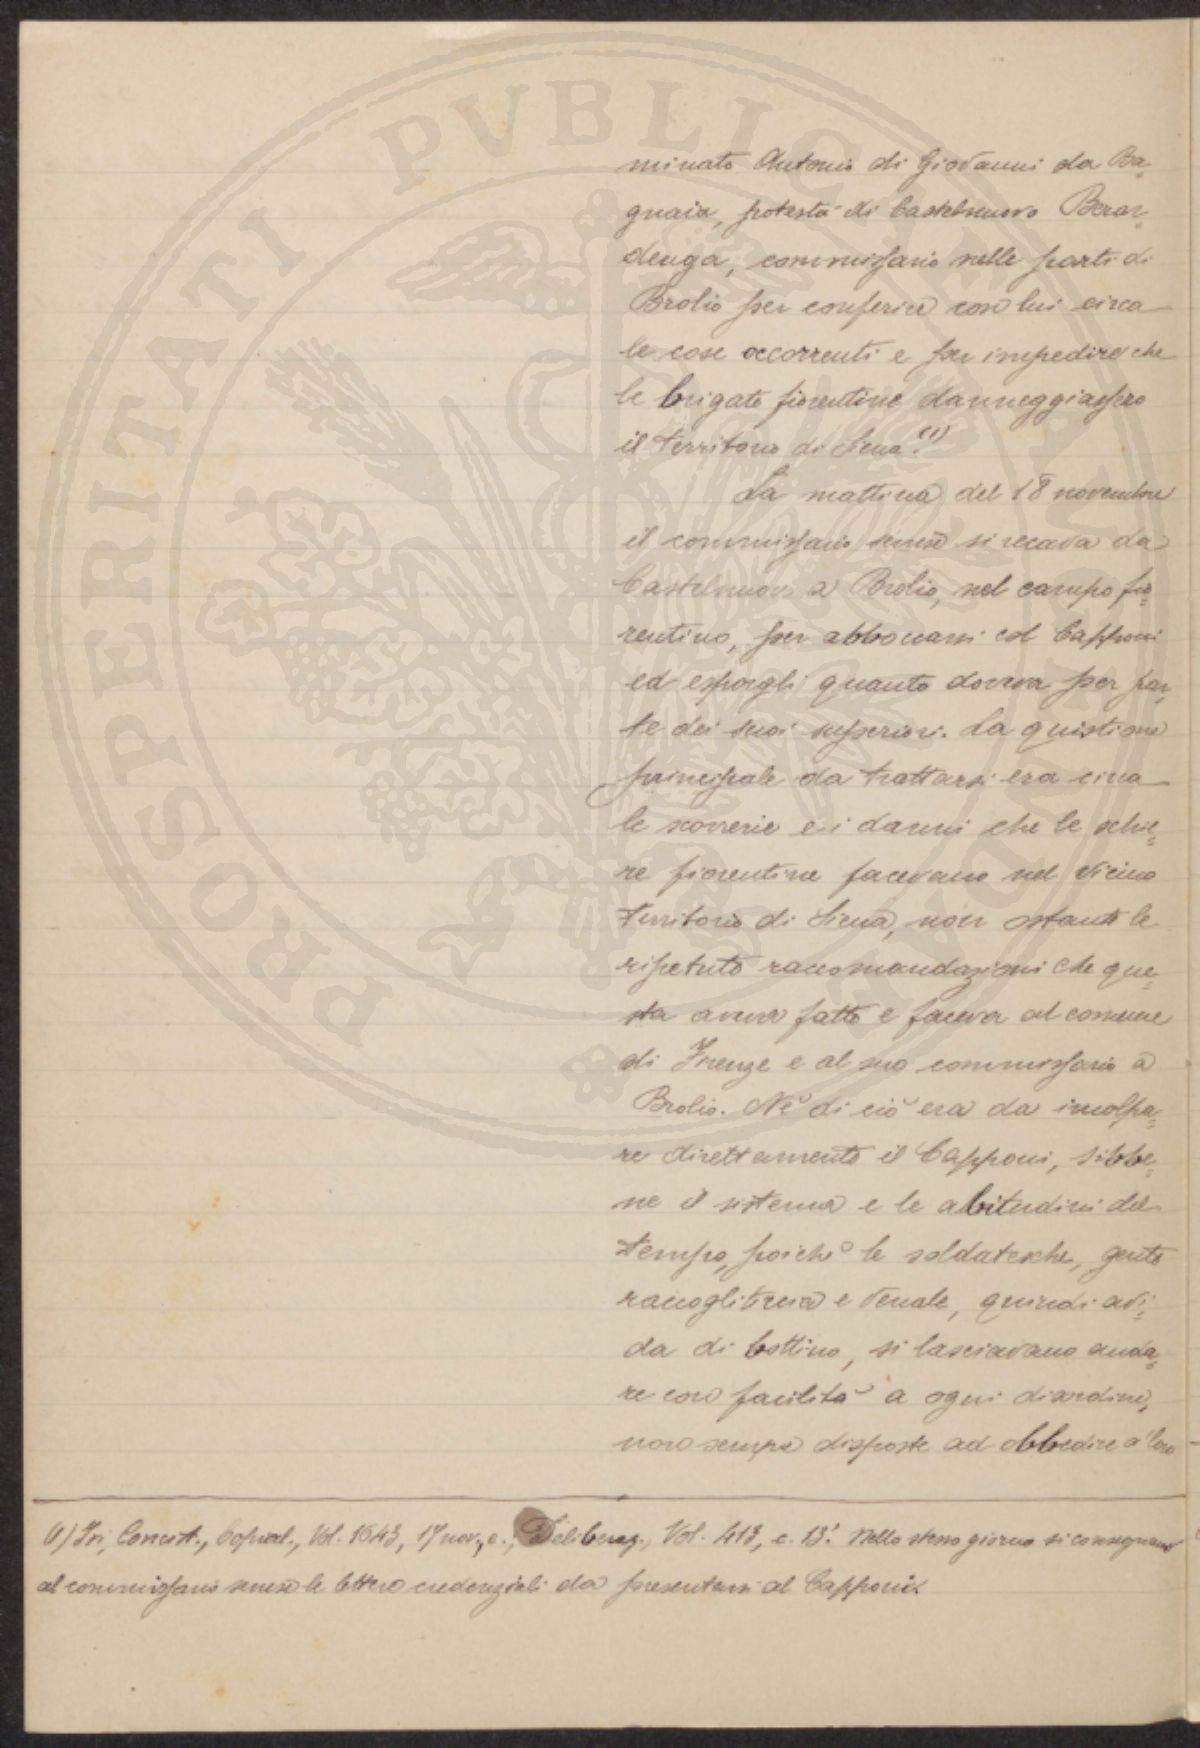 minato Antonio di Giovanni da Ba-
gnaia, potestà di Castelnuovo Berar-
denga, commissario nelle parti di
Brolio per conferire con lui circa
le cose occorrenti e per impedire che
le brigate fiorentine danneggiassero
il territorio di Siena.(1)
La mattina del 18 novembre
il commissario senese si recava da
Castelnuovo a Brolio, nel campo fio-
rentino, per abboccarsi col Capponi
ed esporgli quanto doveva per par-
te dei suoi superiori. La quistione
principale da trattarsi era circa
le scorrerie e i danni che le schie-
re fiorentine facevano nel vicino
territorio di Siena, non ostante le
ripetute raccomandazioni che que-
sta aveva fatto e faceva al comune
di Firenze e al suo commissario a
Brolio. Nè di ciò era da incolpa-
re direttamente il Capponi, sibbe-
ne il sistema e le abitudini del
tempo, poichè le soldatesche, gente
raccogliticcia e venale, quindi avi-
da di bottino, si lasciavano anda-
re con facilità a ogni disordine,
non sempre disposte ad obbedire a' loro
(1) Ivi, Concist., Copial., Vol. 1643, 17 nov., c.; Deliberaz., Vol. 413, c. 13.' Nello stesso giorno si consegnano
al commissario senese le lettere credenziali da presentarsi al Capponi.
PROSPERITATI PVBLICAE